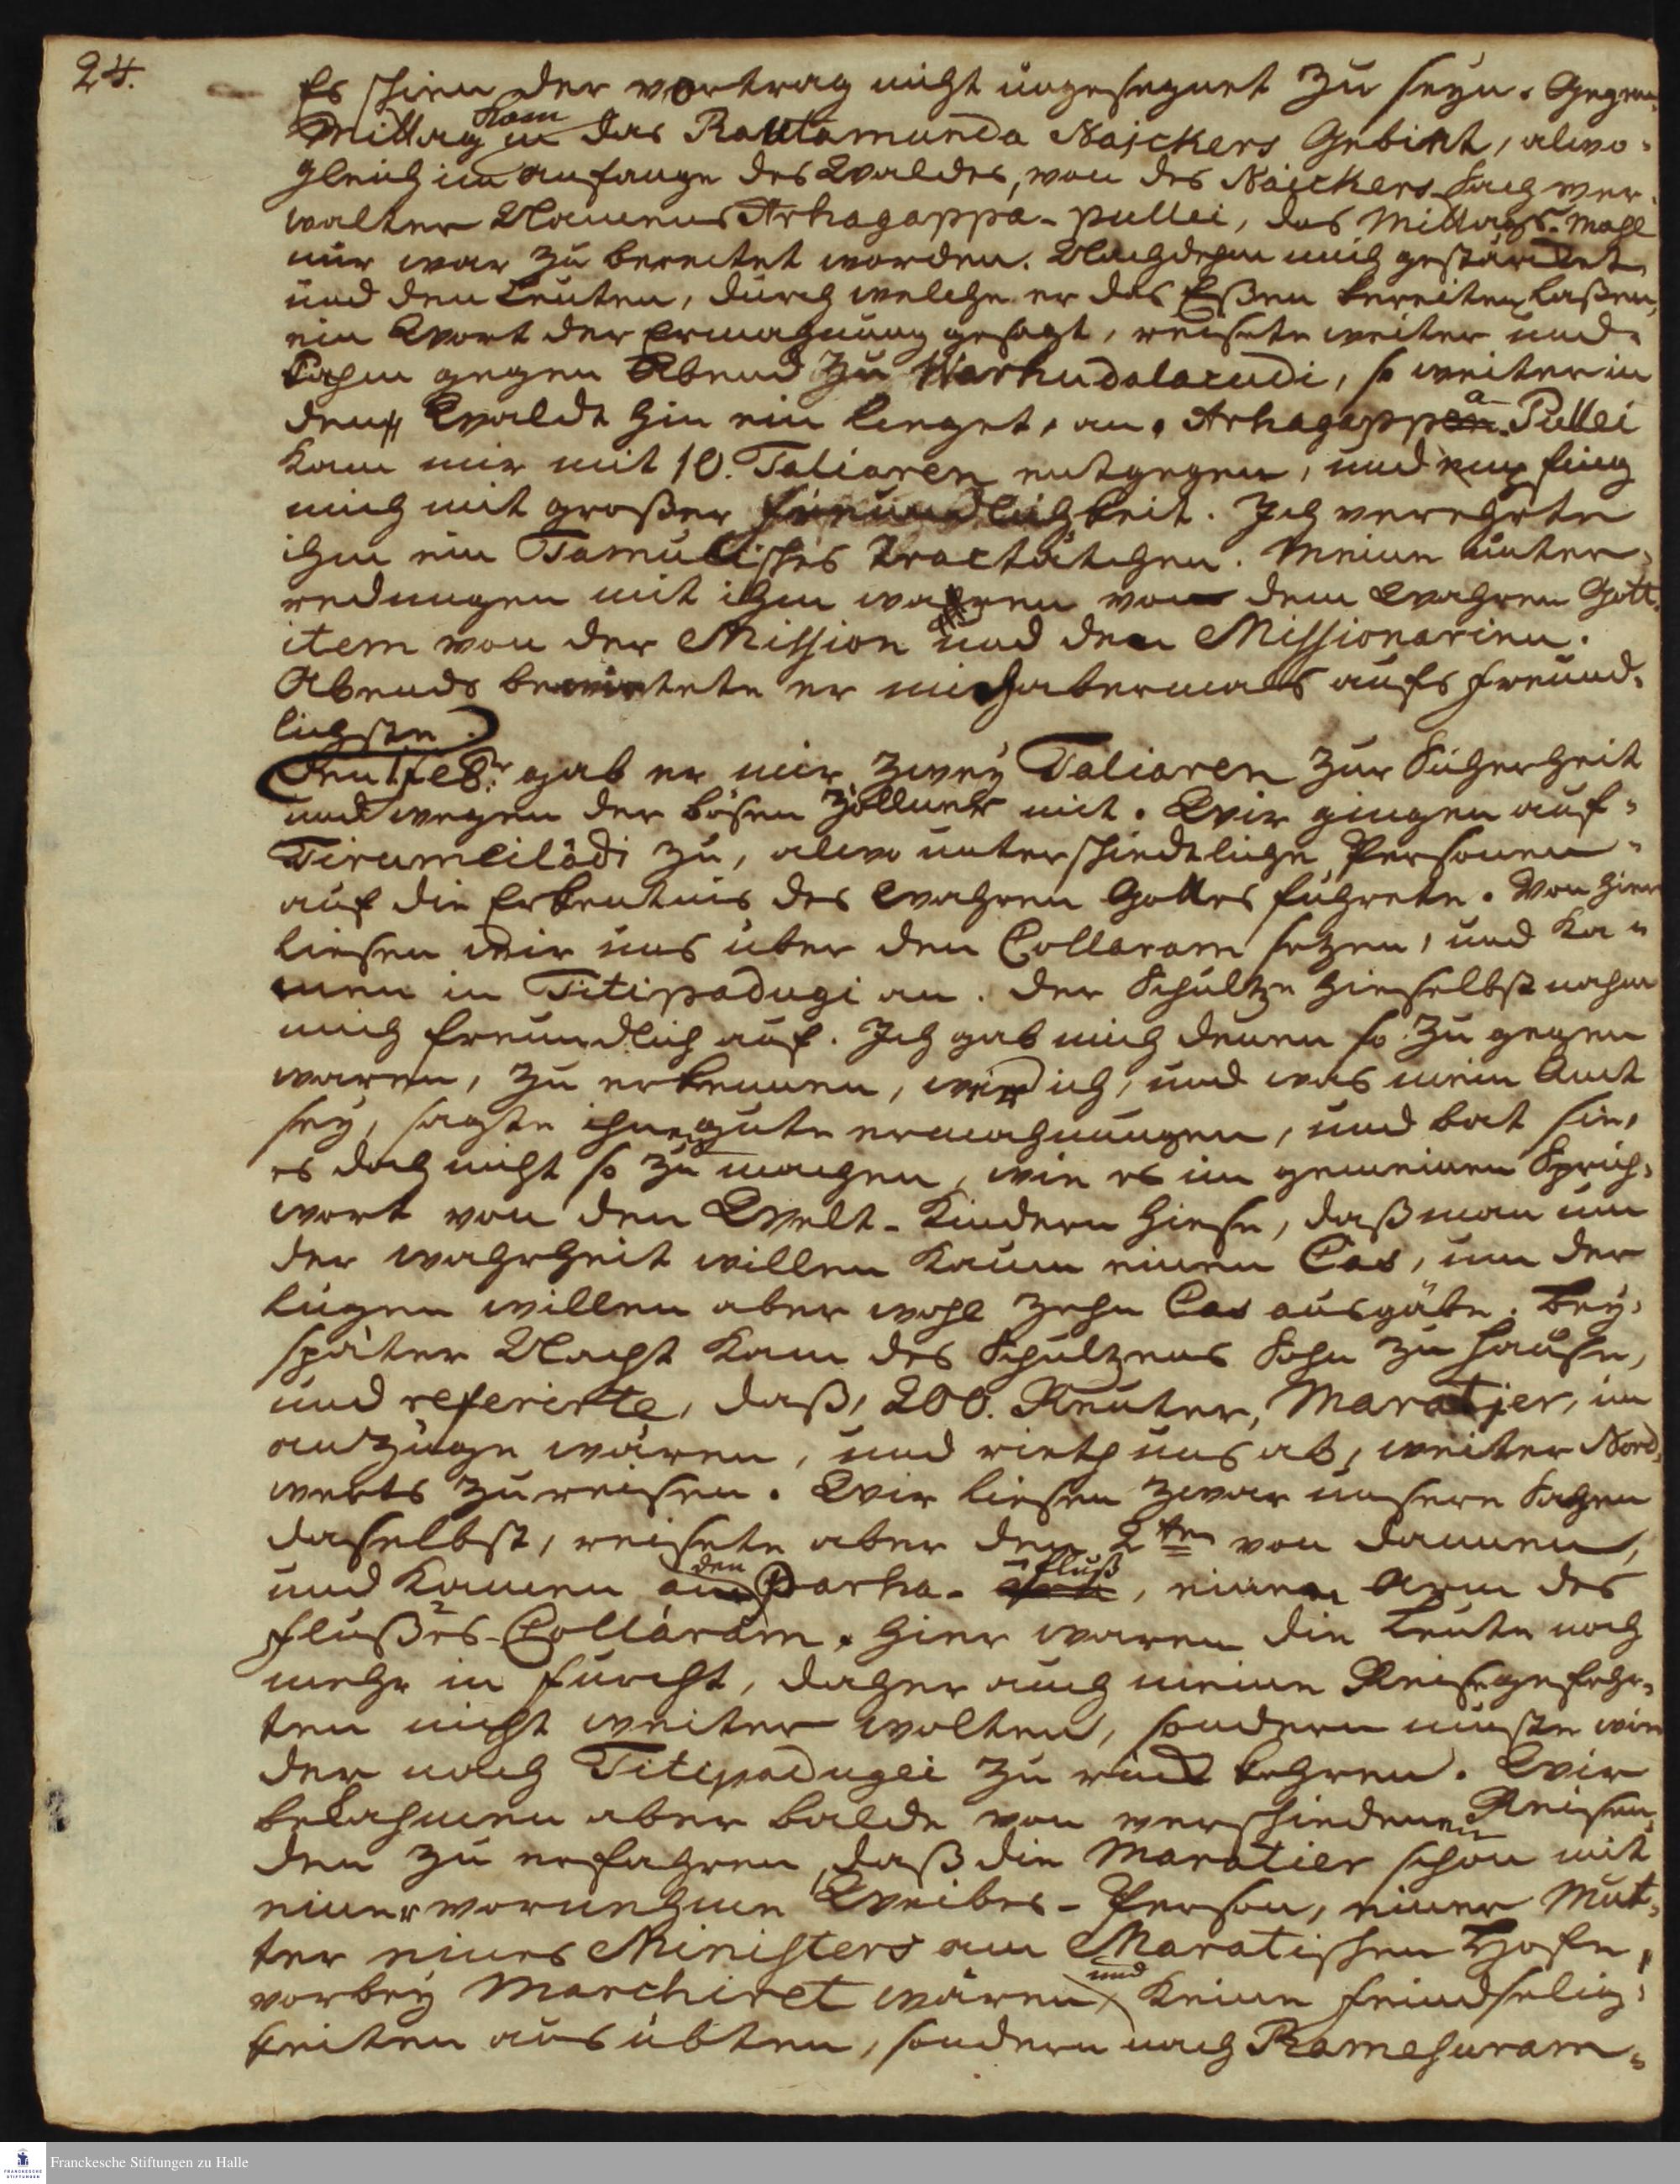 24.
Es schien der vortrag nicht ungesegnet zu seyn. Gegen
Mittag kam in das Rautamunda Naickers Gebiet, alwo
gleich im anfange des Waldes, von des Naickers Sachver-
walter Namens Arhagappa-pullei, das Mittags-Mahl
mir war zu bereitet worden. Nachdem mich gestärcket
und den Leuten, durch welche er das Eßen bereiten laßen,
ein Wort der Ermahnung gesagt, reisete weiter und
kahm gegen Abend zu Warhudalacudi, so weiter in
den Waldt hin ein lieget, an. Arhagappa Pullei
kam mir mit 10. Taliaren entgegen, und empfing
mich mit großer freundlichkeit. Ich verehrte
ihm ein Tamulisches Tractätchen. Meine unter-
redungen mit ihm waren von dem wahren Gott
item von der Mission und den Missionarien.
Abends bewirtete er mich abermals aufs freund-
lichste.
Den 1 Febr. gab er mir zwey Taliaren zur Sicherheit
und wegen der bösen Zöllner mit. Wir gingen auf
Tirumeilädi zu, alwo unterschiedtliche Personen
auf die Erkentnis des wahren Gottes führete. Von hier
liesen wir uns über den Collaram setzen, und ka-
men in Titipadugi an. Der Schultze hieselbst nahm
mich freundlich auf. Ich gab mich denen so zu gegen
waren, zu erkennen, wer ich, und was mein Amt
sey, sagte ihnen gute ermahnungen, und bat sie,
es doch nicht so zu machen, wie es im gemeinen Sprich-
wort von den Welt-Kindern hiese, daß man um
der wahrheit willen kaum einen Cas, um der
lügen willen aber wohl zehn Cas ausgäbe. Bey
später Nacht kam des Schultzens Sohn zu Hause,
und referirte, daß, 200. Reuter, Maratjer, im
anzuge wären, und rieth uns ab, weiter Nord-
werts zu reisen. Wir liesen zwar unsere Sachen
daselbst, reisete aber den 2ten von dannen,
und kamen an den Parha-Fluß, einen Arm des
Flußes Collaram. Hier waren die Leute noch
mehr in furcht, daher auch meine Reisegefehr-
ten nicht weiter wolten, sondern muste wie
der nach Titipadugei zu rück kehren. Wir
bekahmen aber balde von verschiedenen Reisen-
den zu erfahren, daß die Maratier schon mit
einer vornehmen Weibes-Person, einer Mut-
ter eines Ministers am Maratischen Hofe,
vorbey Marchiret wären, und keine feindselig-
keiten ausübten, sondern nach Ramesuram
Franckesche Stiftungen zu Halle
FRANCKESCHE
STIFTUNGEN